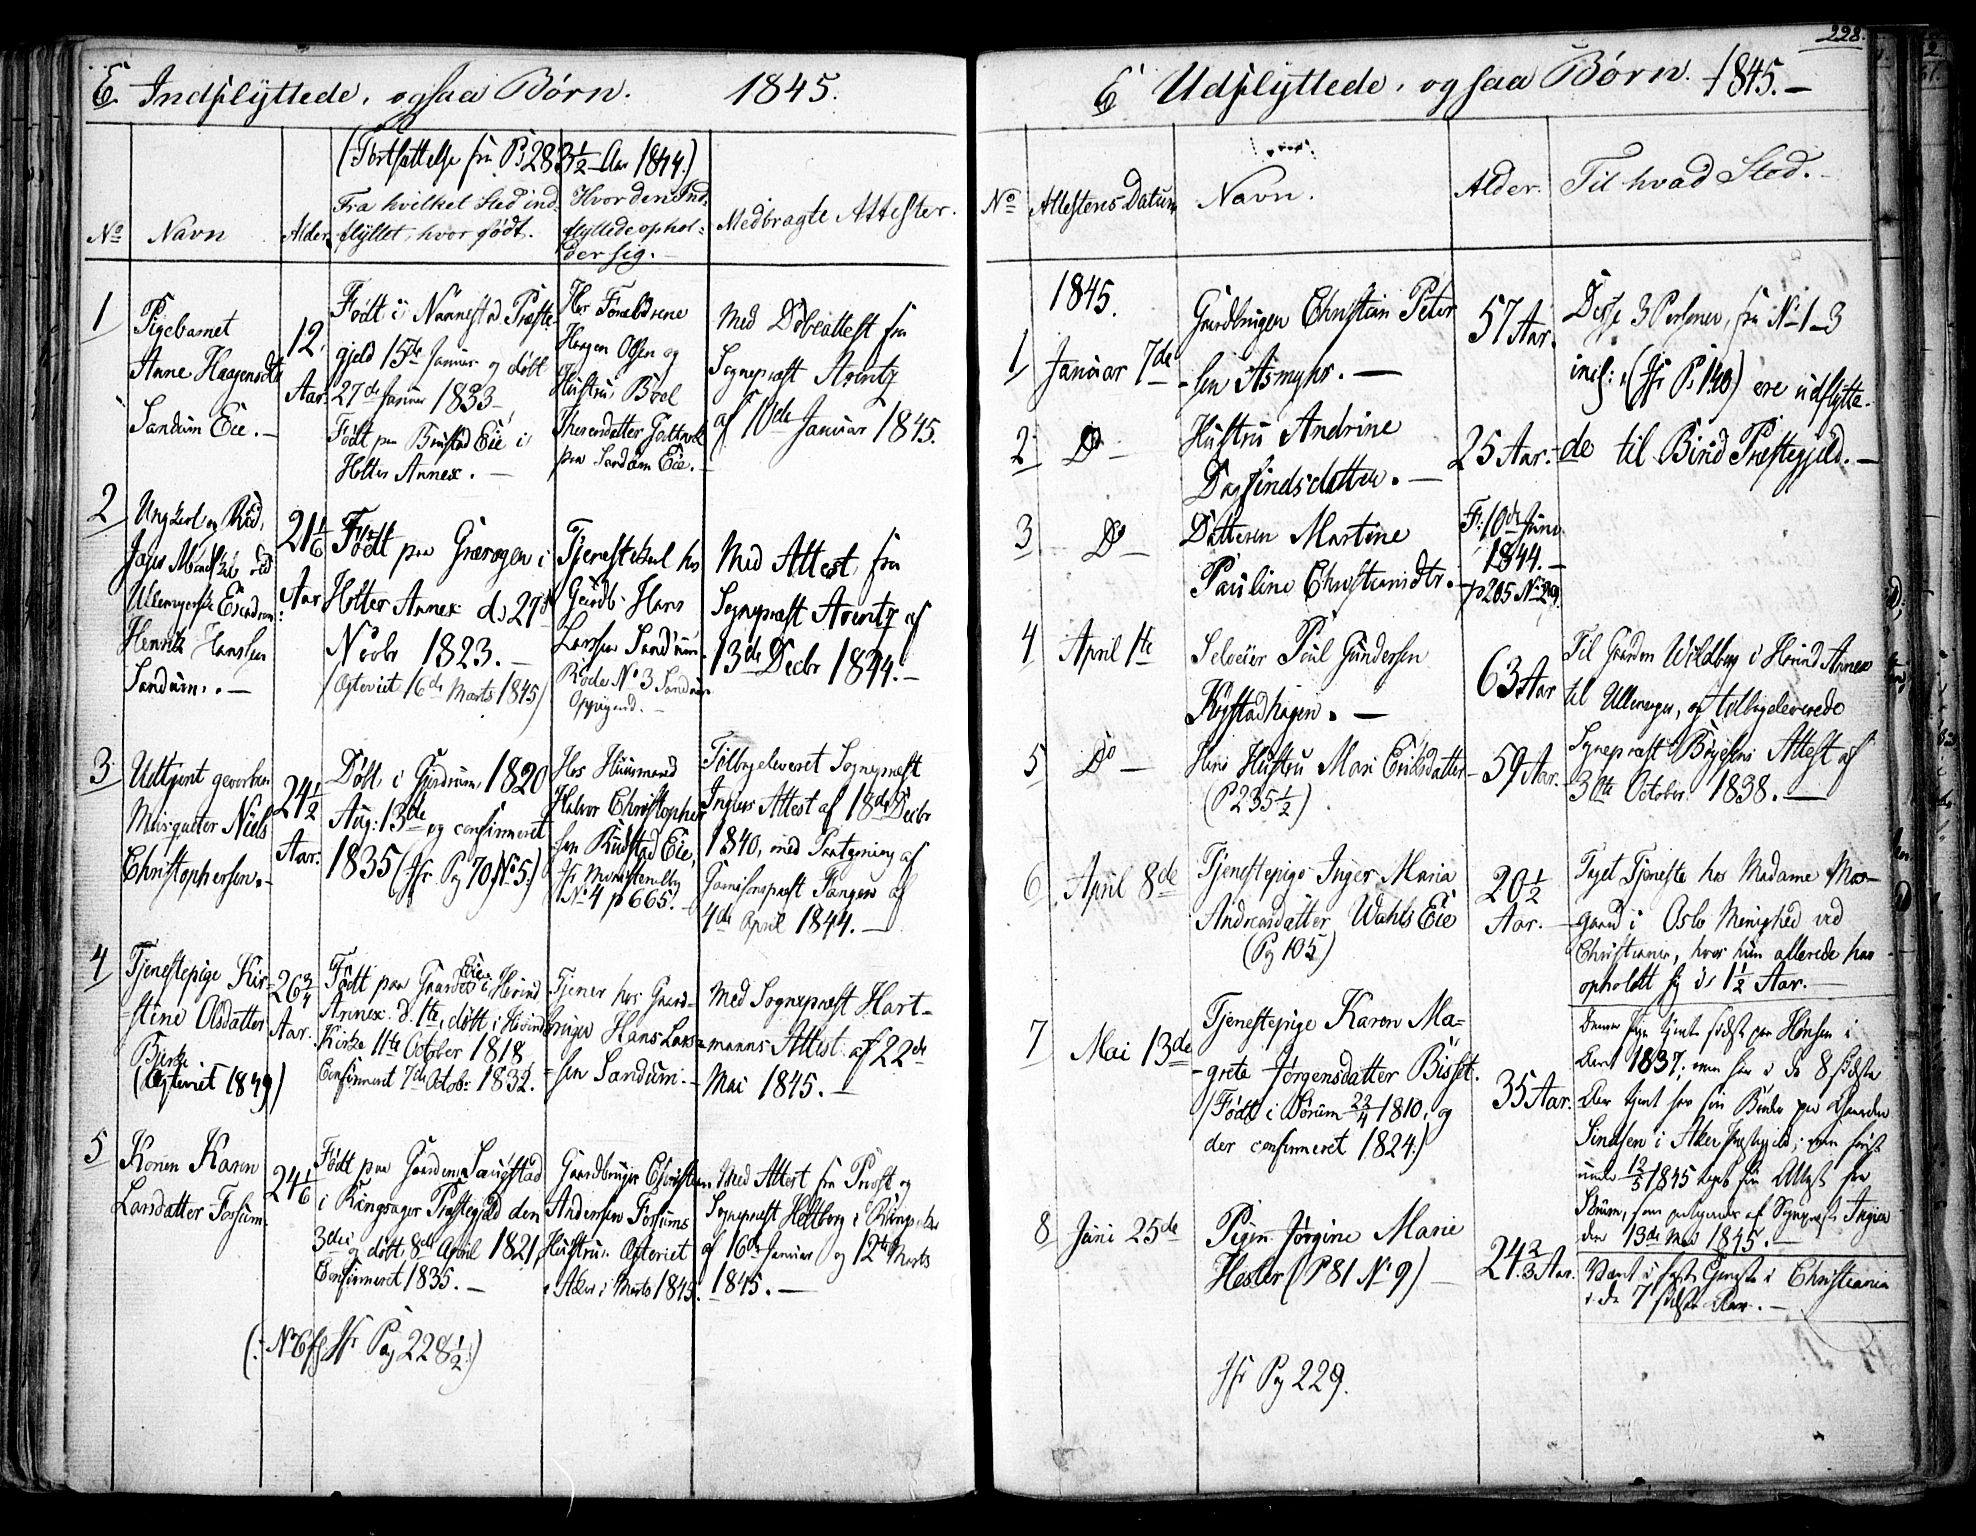 E. Indflyttede, ogsaa Børn. 1845.
(Fortsættelse fra P: 283½ Aar 1844.)
No
Navn
Alder
Fra hvilket Sted ind-
flyttet, hvor født.
Hvor den Ind-
flyttede ophol-
der sig.
Medbragte Attester.
1
Pigebarnet
Anne Haagensdtr
Sandum Eie.
12
Aar.
Født i Nannestad Præste-
gjeld 15de Januar og døbt
27de Januar 1833
Født paa Brustad Eie i
Holter Annex.
Hos Forældrene
Haagen Olsen og
Hustru Boel
Iversdatter
paa Sandum Eie.
Med Døbeattest fra
Sognepræst Arentz
af 10de Januar 1845.
2
Ungkarl og
Ullensagerske
Henrik Hanssen
Sandum.
21 1/6
Aar
Født paa i
Holter Annex d. 27de
Novbr 1823.
(Copuleret 16de Marts 1845)
Tjenestekarl hos
Gaardb. Hans
Larssen Sandum
Rode No 3 Sandum
Opsigend.
Med Attest fra
Sognepræst Arentz af
13de Decbr 1844.
3
Udtjent geworben
Musqueter Niels
Christophersen.
24½
Aar.
Døbt i Gjerdrum 1820
Aug: 13de og confirmeret
1835 (Jfr Pag 70, No 5.)
Hos Huusmand
Halvor Christopher-
sen Rudstad Eie,
Jfr
No 4 p 665.
Tilbageleveret Sognepræst
Attest af 18de Decbr
1840, med Paategning af
Garnisonspræst Tangen af
4de April 1844.
4
Tjenestepige Kir-
stine Olsdatter
Bjerke
(Copuleret 1849)
26¾
Aar.
Født paa Gaardens Eie i Hovind
Annex d. 1te, døbt i Hovind
Kirke 11te October 1818,
Confirmeret 7de Octob: 1832.
Tjener hos Gaard-
bruger Hans Lars-
sen Sandum.
Med Sognepræst Hart-
manns Attest af 22de
Mai 1845.
5
Konen Karen
Larsdatter Fossum.
24 1/6
Født paa Gaarden Saugstad
i Ringsager Præstegjeld den
3die og døbt 8de April 1821,
Confirmeret 1835.
Gaardbruger Christian
Andersen Fossums
Hustru. Copuleret
i Aker i Marts 1845.
Med Attest fra Provst og
Sognepræst Heltberg i Ringsaker
af 16de Januar og 12te Marts
1845.
(: No 6 Jfr Pag 228½ :)
228.
E Udflyttede, ogsaa Børn. 1845.
No
Attestens Datum
Navn.
Alder.
Til hvad Sted.
1845.
1
Januar 7de
Gaardbruger Christian Peter
sen Asmyhr.
57 Aar.
Disse 3 Personer, fra No 1-3
incl: (Jfr P. 140) ere udflytte-
de til Præstegjeld.
2
Do
Hustru Andrine
Dagfindsdatter.
25 Aar.
3
Do
Datteren Martine
Pauline Christiansdtr.
F: 10de Juni
1844.
p 205 No 29.
4
April 1te
Selveier Poul Gundersen
Krystadhagen.
63 Aar
Til Gaarden i Hovind Annex
til Ullensager, og tilbageleverede
Sognepræst Attest af
30te October 1838.
5
Do
Hans Hustru Mari Eriksdatter
(P 235½)
59 Aar.
6
April 8de
Tjenestepige Inger Maria
Andreasdatter Wahls Eie
(Pag 105)
20½
Aar.
Taget Tjeneste hos Madame Mor-
gaard i Oslo Menighed ved
Christiania, hvor hun allerede har
opholdt sig i 1½ Aar.
7
Mai 13de
Tjenestepige Karen Ma-
grete Jørgensdatter Bisset.
(Født i Sørum 22/4 1810, og
der confirmeret 1824.)
35 Aar.
Denne Pige tjente sidst paa Hønsen i
Aaret 1837; men har i de 8 sidste
Aar tjent hos sin Broder paa Gaarden
Sinsen i Aker Præstegjeld; men først
under 12/5 1845 taget sin Attest fra
Sørum, som paategnet af Sognepræst
den 13de Mai 1845.
8
Juni 25de
Pigen Jørgine Marie
Hesler (P 81 No 9)
24⅔ Aar.
Været i fast Tjeneste i Christiania
i de 7 sidste Aar.
Jfr Pag 229.